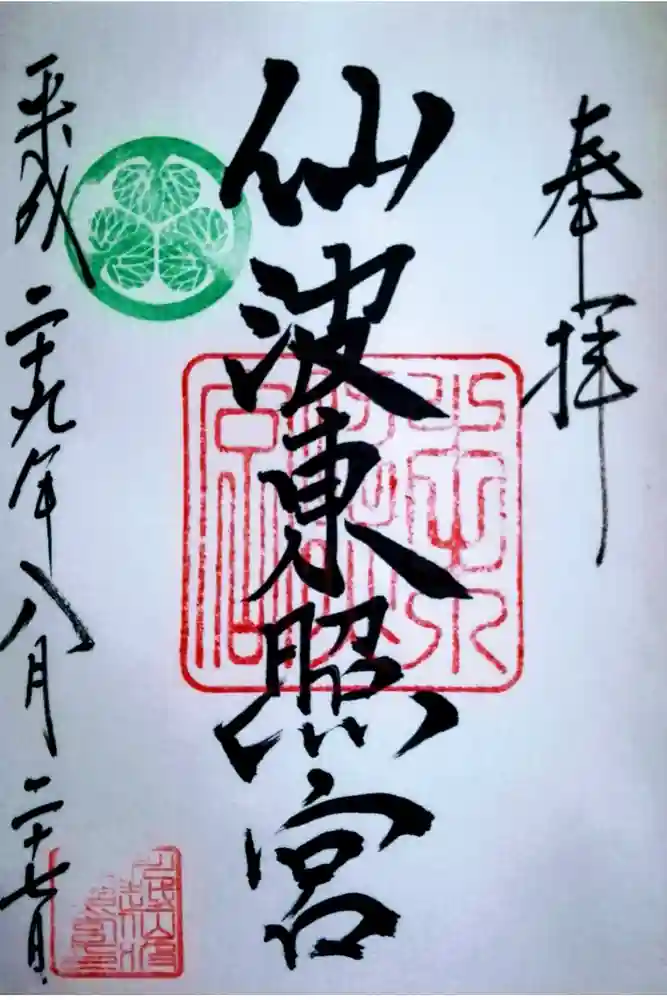 奉拝
仙波東照宮
平成二十九年八月二十七日